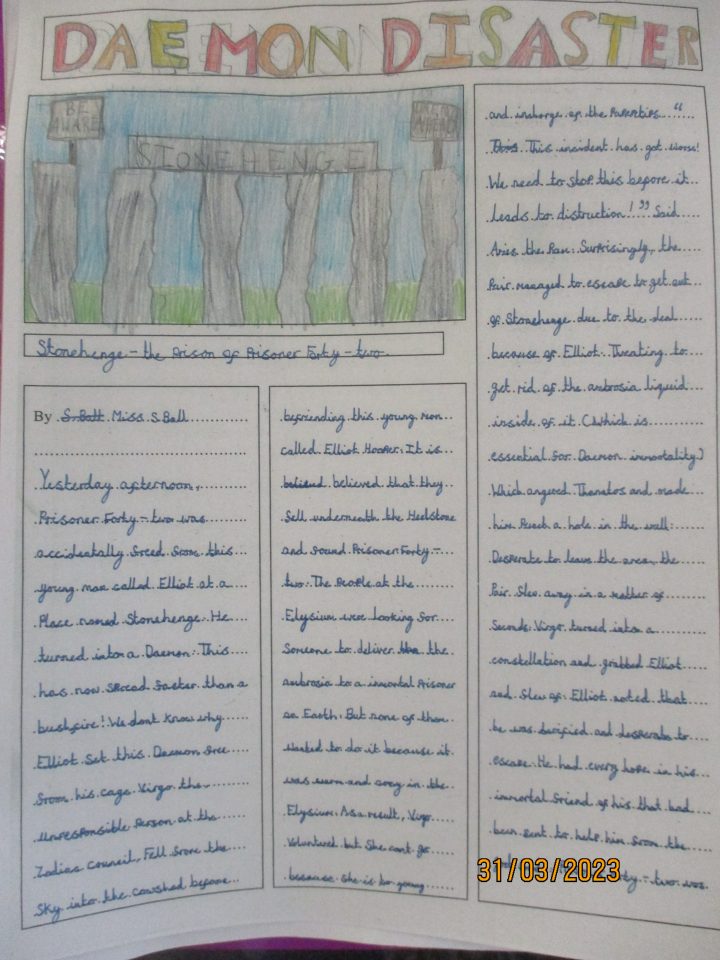 DAEMON DISASTER
BE
AWARE
STONEHENGE
Stonehenge - the Prison of Prisoner Forty - two
By S.Batt Miss S Ball
Yesterday afternoon,
Prisoner Forty - two was
accidentally freed from this
young man called Elliot at a
Place named Stonehenge. He
turned into a Daemon. This
has now spread faster than a
bushfire! We dont know why
Elliot Set this Daemon free
from his cage. Virgo the
unresponsible Person at the
Zodiac council, Fell from the
Sky into the cowshed before
befriending this young man
called Elliot Hooper. It is
believed that they
fell underneath the Heelstone
and found Prisoner Forty -
two. The People at the
Elysium were looking for
Someone to deliver the
ambrosia to a immortal Prisoner
on Earth. But none of them
wanted to do it because it
was warm and cosy in the
Elysium. As a result, Virgo
Voluntured but She cant go
because She is to young
and incharge of the Paperclips. "
This incident has got worse!
We need to stop this before it
leads to distruction!" Said
Aries the Ram. Surprisingly, the
Pair managed to escape to get out
of Stonehenge due to the deal
because of Elliot. Treating to
get rid of the ambrosia liquid
inside of it (Which is
essential for Daemon immortality)
Which angered Thanatos and made
him Punch a hole in the wall.
Desperate to leave the area, the
Pair flew away in a matter of
Seconds. Virgo turned into a
constellation and grabbed Elliot
and flew of. Elliot noted that
he was terified and desperate to
escape. He had every hope in his
immortal friend of his that had
been sent to help him from the
two was
31/03/2023